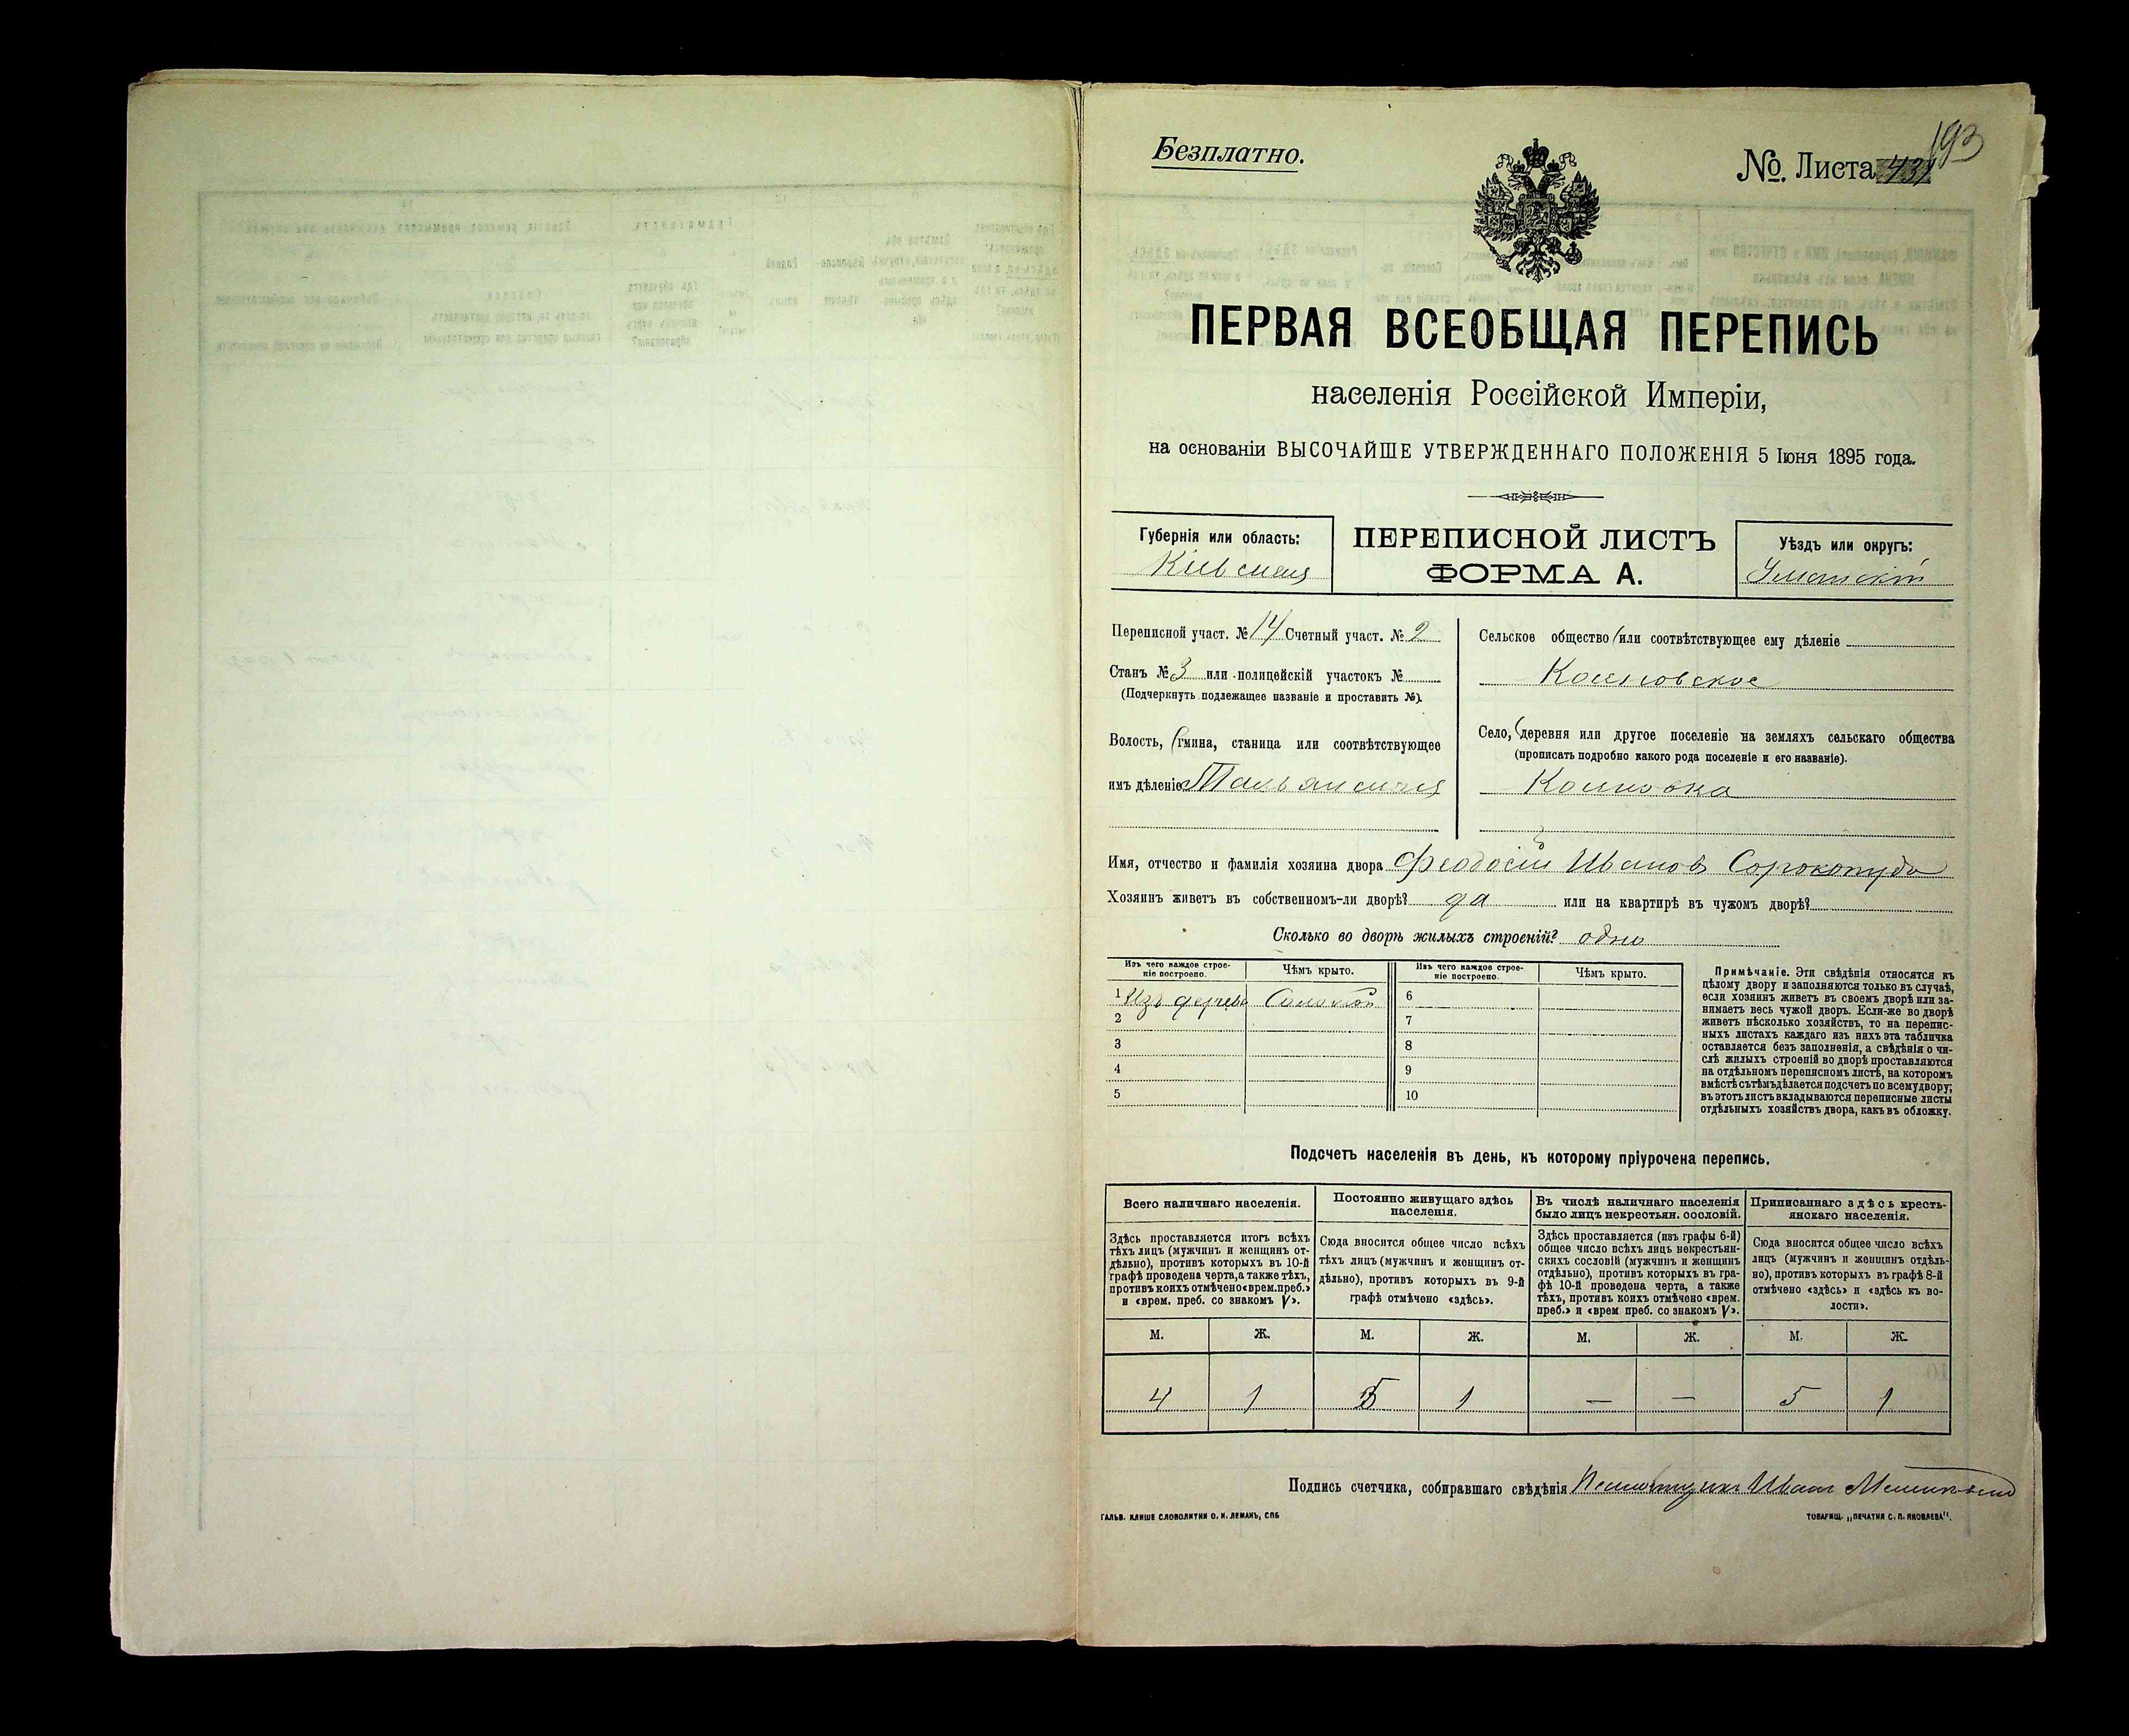 193
Безплатно.
№. Листа 431
ПЕРВАЯ ВСЕОБЩАЯ ПЕРЕПИСЬ
населенія Россійской Имперіи,
на основаніи ВЫСОЧАЙШЕ УТВЕРЖДЕННАГО ПОЛОЖЕНІЯ 5 Іюня 1895 года.
Губернія или область:
Кіевская
ПЕРЕПИСНОЙ ЛИСТЪ
ФОРМА А.
Уѣздъ или округъ:
Уманскій
Переписной участ. № 14 Счетный участ. № 2
Станъ № 3 или полицейскій участокъ №
(Подчеркнуть подлежащее названіе и проставить №).
Волость, (гмина, станица или соотвѣтствующее
имъ дѣленіе Тальянская
Сельское общество (или соотвѣтствующее ему дѣленіе
Село, (деревня или другое поселеніе на земляхъ сельскаго общества
(прописать подробно какого рода поселеніе и его названіе).
Имя, отчество и фамилія хозяина двора Феодосій Ивановъ Сорокопудъ
Хозяинъ живетъ въ собственномъ-ли дворѣ? да или на квартирѣ въ чужомъ дворѣ?
Сколько во дворѣ жилыхъ строеній? одно
Изъ чего каждое строе-
ніе построено.
Чѣмъ крыто.
Изъ чего каждое строе-
ніе построено.
Чѣмъ крыто.
1 Изъ дерева Соломой 6
2 7
3 8
4 9
5 10
Примѣчаніе. Эти свѣдѣнія относятся къ
цѣлому двору и заполняются только въ случаѣ,
если хозяинъ живетъ въ своемъ дворѣ или за-
нимаетъ весь чужой дворъ. Если-же во дворѣ
живетъ нѣсколько хозяйствъ, то на перепис-
ныхъ листахъ каждаго изъ нихъ эта табличка
оставляется безъ заполненія, а свѣдѣнія о чи-
слѣ жилыхъ строеній во дворѣ проставляются
на отдѣльномъ переписномъ листѣ, на которомъ
вмѣстѣ съ тѣмъ дѣлается подсчетъ по всему двору;
въ этотъ листъ вкладываются переписные листы
отдѣльныхъ хозяйствъ двора, какъ въ обложку.
Подсчетъ населенія въ день, къ которому пріурочена перепись.
Всего наличнаго населенія.
Здѣсь проставляется итогъ всѣхъ
тѣхъ лицъ (мужчинъ и женщинъ от-
дѣльно), противъ которыхъ въ 10-й
графѣ проведена черта, а также тѣхъ,
противъ коихъ отмѣчено «врем. преб.»
и «врем. преб. со знакомъ V».
Постоянно живущаго здѣсь
населенія.
Сюда вносится общее число всѣхъ
тѣхъ лицъ (мужчинъ и женщинъ от-
дѣльно), противъ которыхъ въ 9-й
графѣ отмѣчено «здѣсь».
Въ числѣ наличнаго населенія
было лицъ некрестьян. сословій.
Здѣсь проставляется (изъ графы 6-й)
общее число всѣхъ лицъ некрестьян-
скихъ сословій (мужчинъ и женщинъ
отдѣльно), противъ которыхъ въ гра-
фѣ 10-й проведена черта, а также
тѣхъ, противъ коихъ отмѣчено «врем.
преб.» и «врем преб. со знакомъ V».
Приписаннаго здѣсь кресть-
янскаго населенія.
Сюда вносится общее число всѣхъ
лицъ (мужчинъ и женщинъ отдѣль-
но), противъ которыхъ въ графѣ 8-й
отмѣчено «здѣсь» и «здѣсь къ во-
лости».
М. Ж. М. Ж. М. Ж. М. Ж.
4 1 5 1 — — 5 1
Подпись счетчика, собиравшаго свѣдѣнія Иванъ
ГАЛЬВ. КЛИШЕ СЛОВОЛИТНИ О. И. ЛЕМАНЪ, СПБ
ТОВАРИЩ. „ПЕЧАТНЯ С. П. ЯКОВЛЕВА".